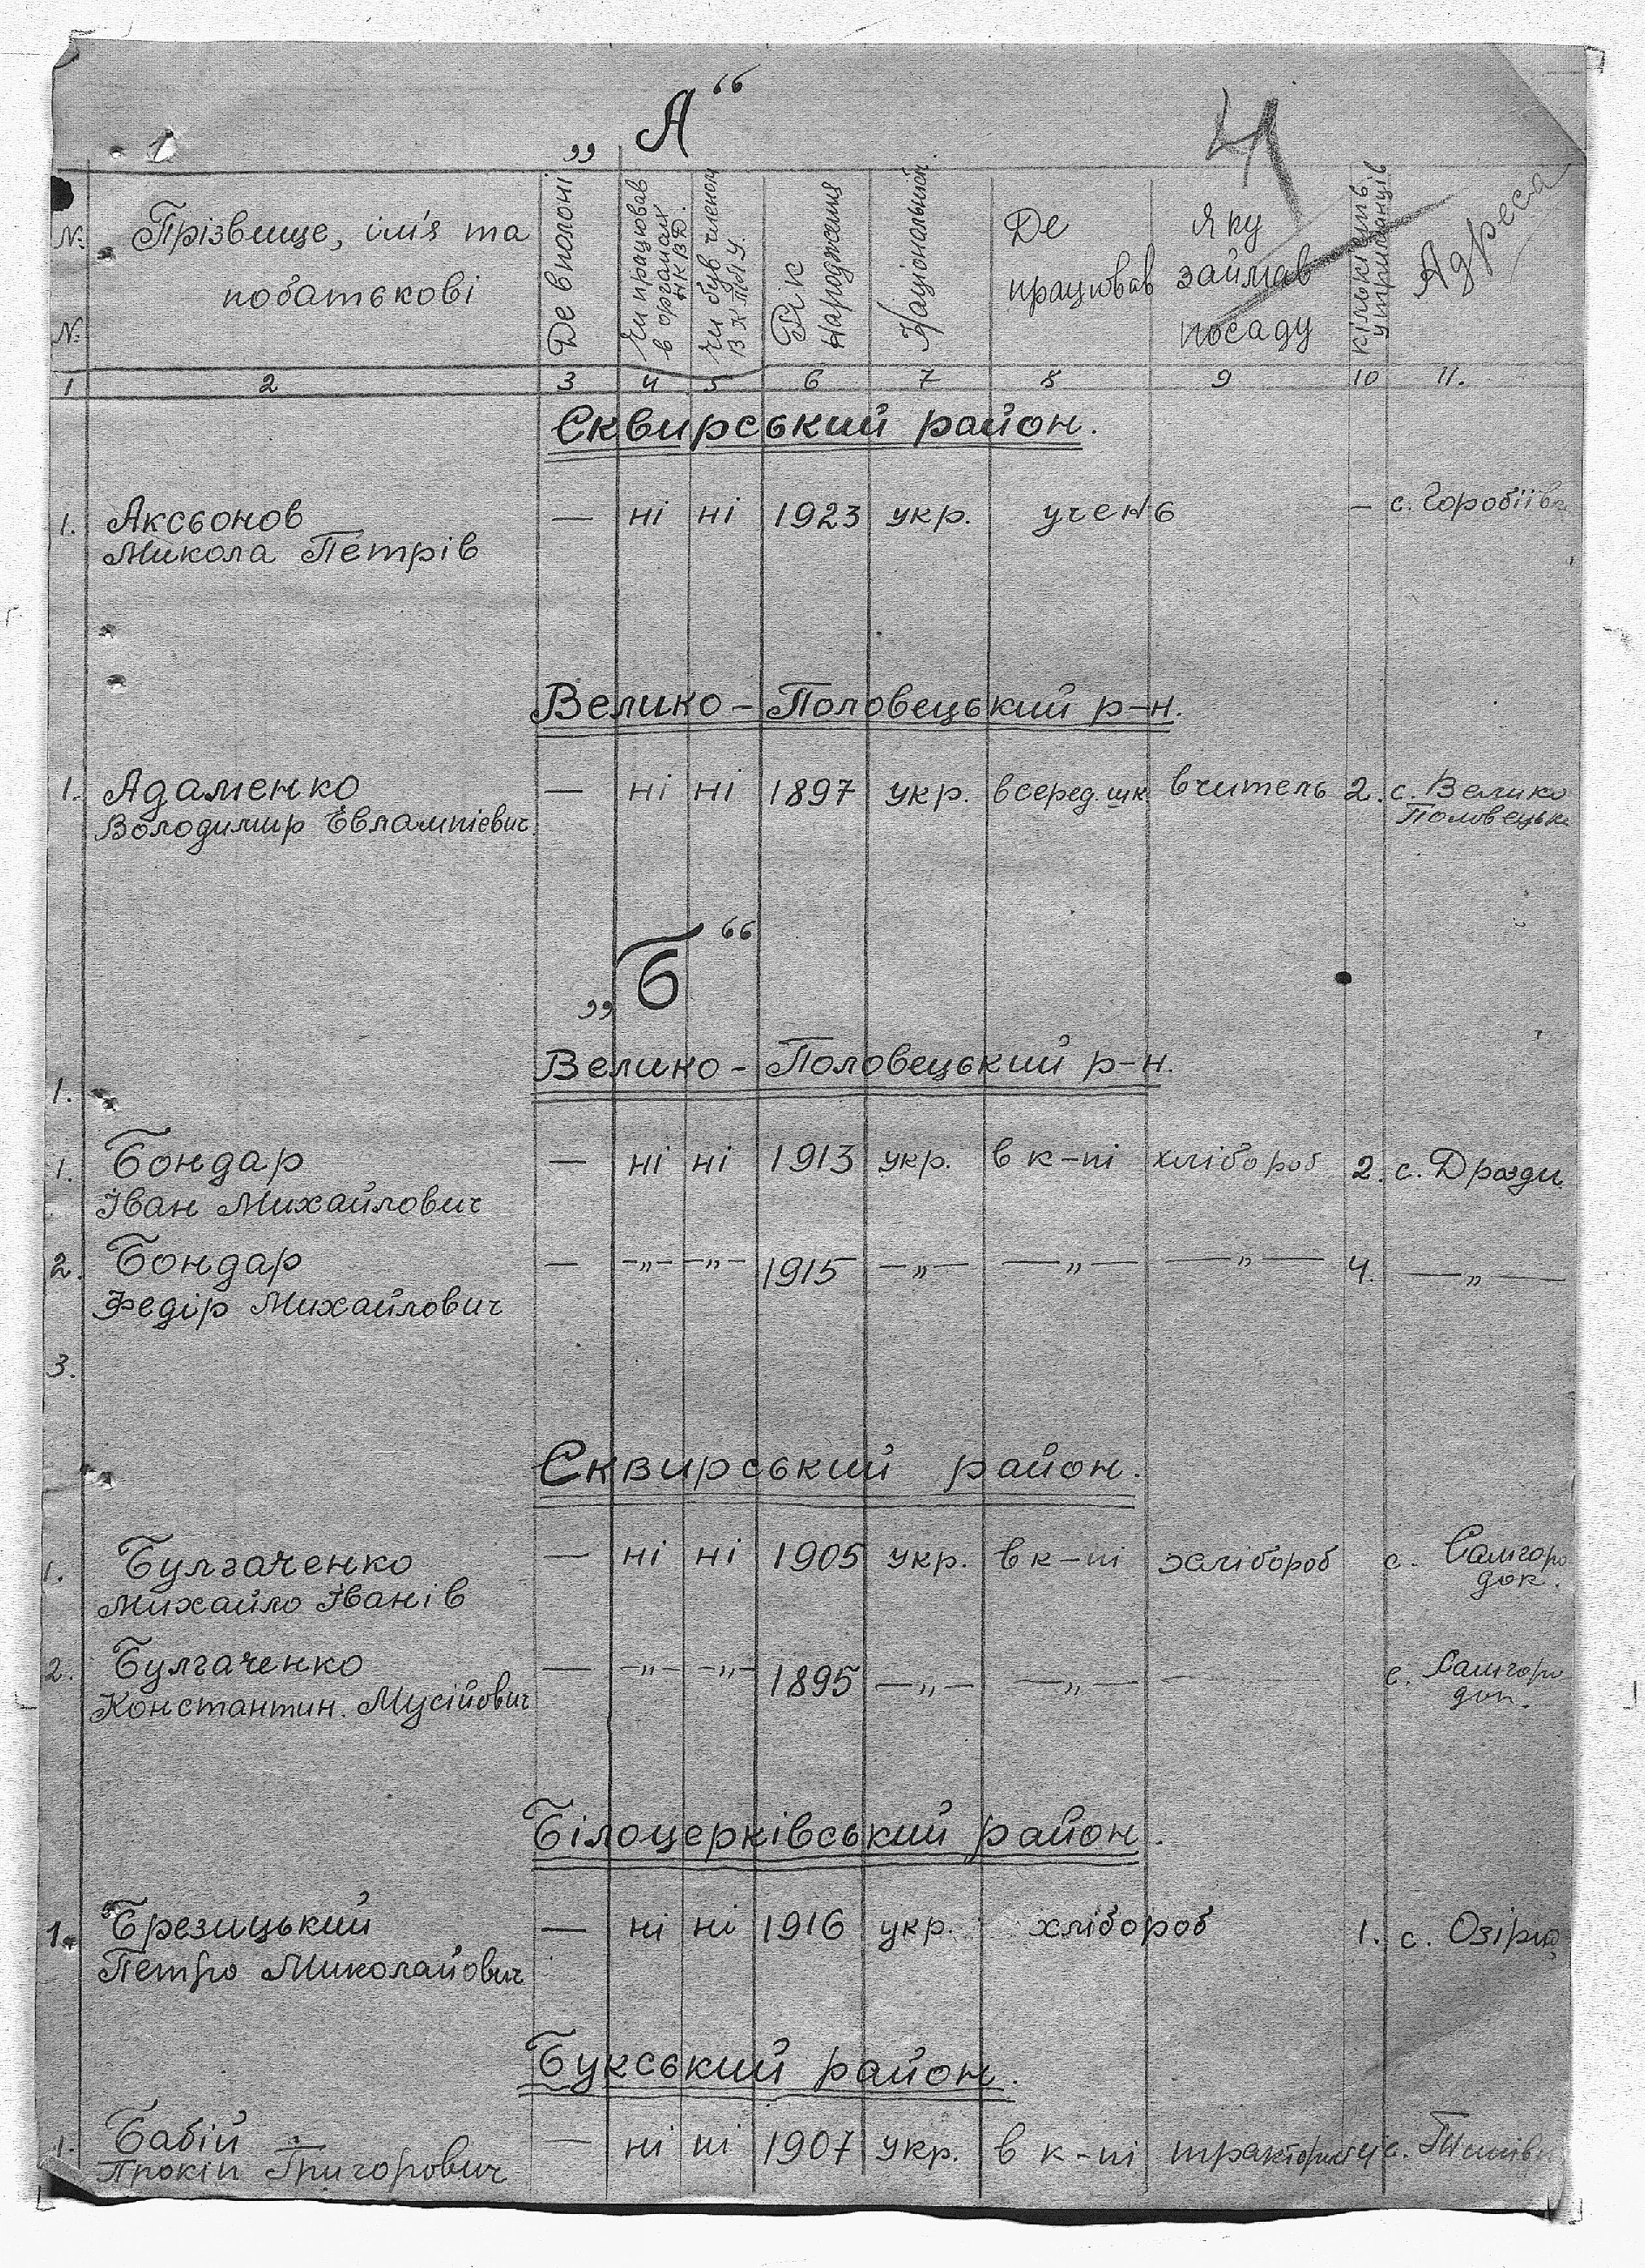 „А“
4
№ №
Прізвище, ім'я та
побатькові
Де в полоні
Чи працював
в органах
НКВД.
Чи був членом
В К П(б)У.
Рік
народження
Національність
Де
працював
Яку
займав
посаду
Кількість
утриманців
Адреса
1 2 3 4 5 6 7 8 9 10 11.
Сквирський район.
1. Аксьонов — ні ні 1923 укр. учень — с. Горобіївка
Микола Петрів
Велико-Половецький р-н.
1. Адаменко — ні ні 1897 укр. в серед. шк. вчитель 2. с. Велико
Володимир Евлампієвич Половецьке
„Б“
Велико-Половецький р-н.
1.
1. Бондар — ні ні 1913 укр. в к-пі хлібороб 2. с. Дрозди
Іван Михайлович
2. Бондар — —„— —„— 1915 —„— —„— —„— 4. —„—
Федір Михайлович
3.
Сквирський район.
1. Булгаченко — ні ні 1905 укр. в к-пі хлібороб с. Самгоро
Михайло Іванів док.
2. Булгаченко — —„— —„— 1895 —„— —„— — с. Самгоро
Константин. Мусійович док.
Білоцерківський район.
1. Брезицький — ні ні 1916 укр. хлібороб 1. с. Озірна
Петро Миколайович
Букський район.
1. Бабій — ні ні 1907 укр. в к-пі тракторист 4 с.
Прокіп Григорович